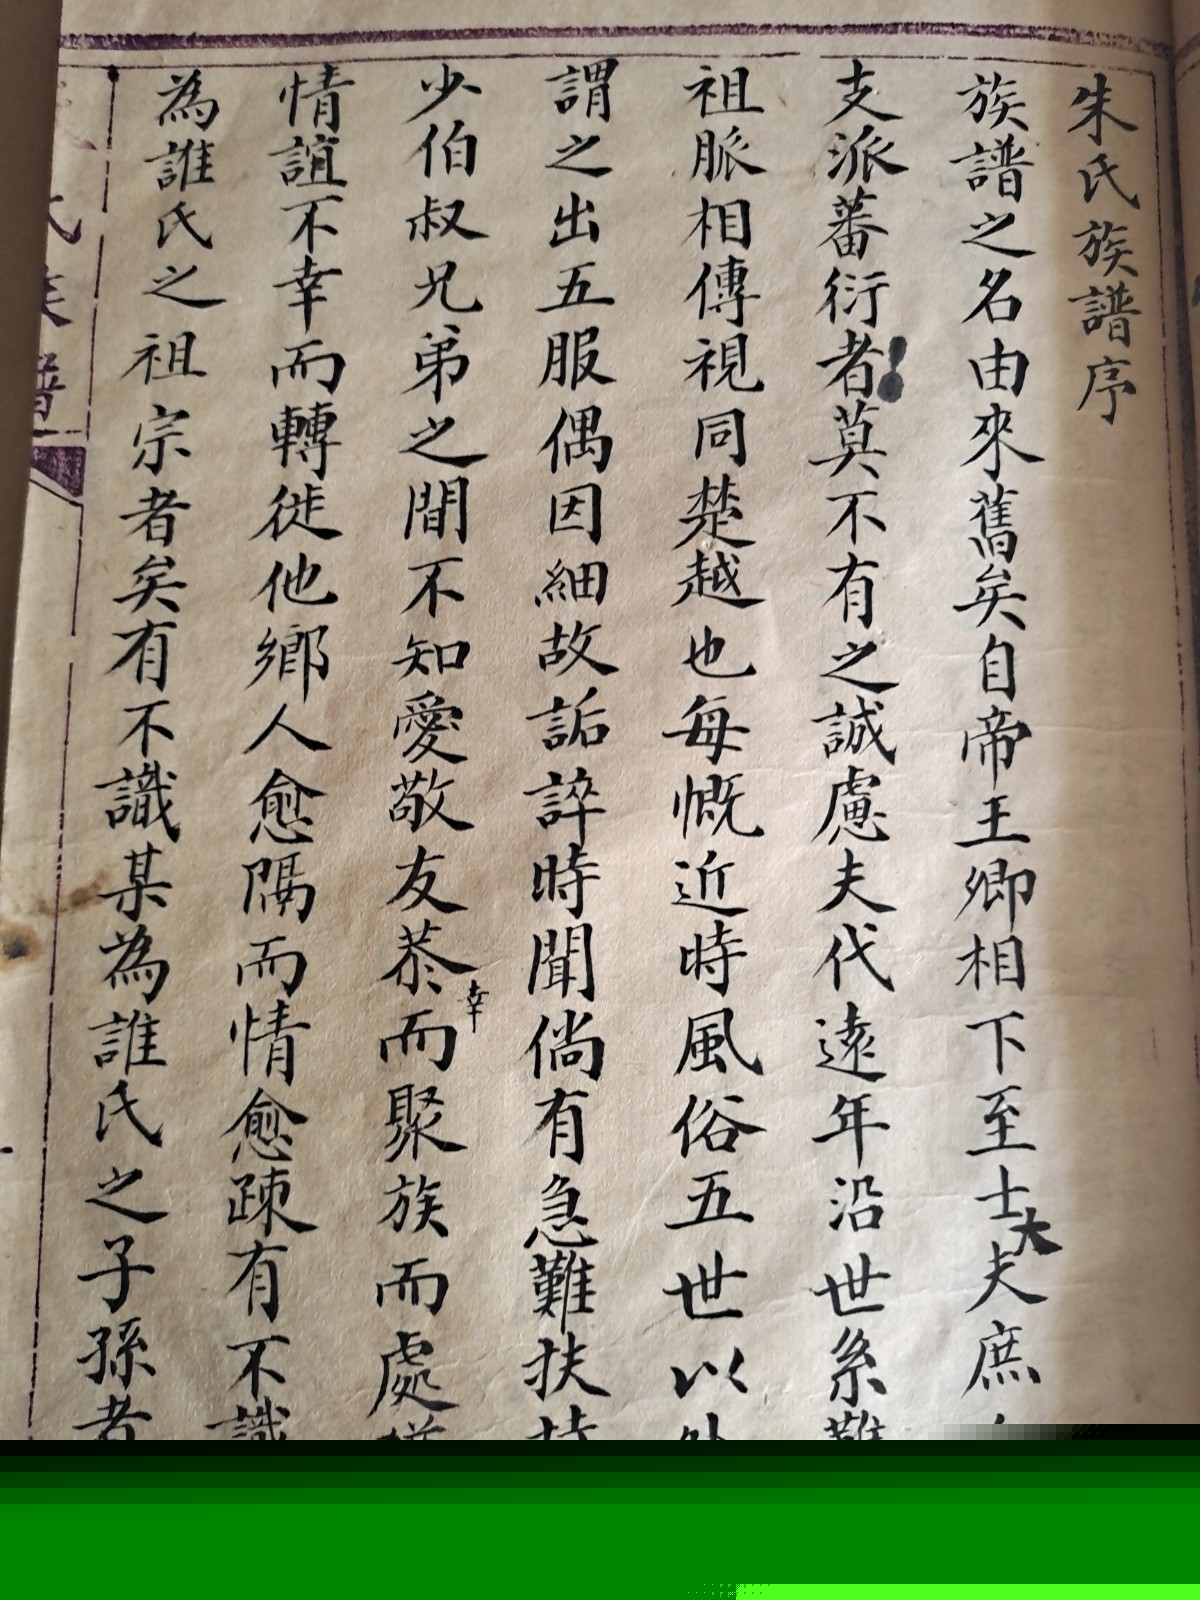 朱氏族譜序
族譜之名由來舊矣自帝王卿相下至士大夫庶
支派蕃衍者莫不有之誠慮夫代遠年沿世系難
祖脈相傳視同楚越也每慨近時風俗五世以外
謂之出五服偶因細故詬誶時聞倘有急難扶持
少伯叔兄弟之間不知愛敬友恭幸而聚族而處
情誼不幸而轉徙他鄉人愈隔而情愈疎有不識
為誰氏之祖宗者矣有不識某為誰氏之子孫者
氏族譜